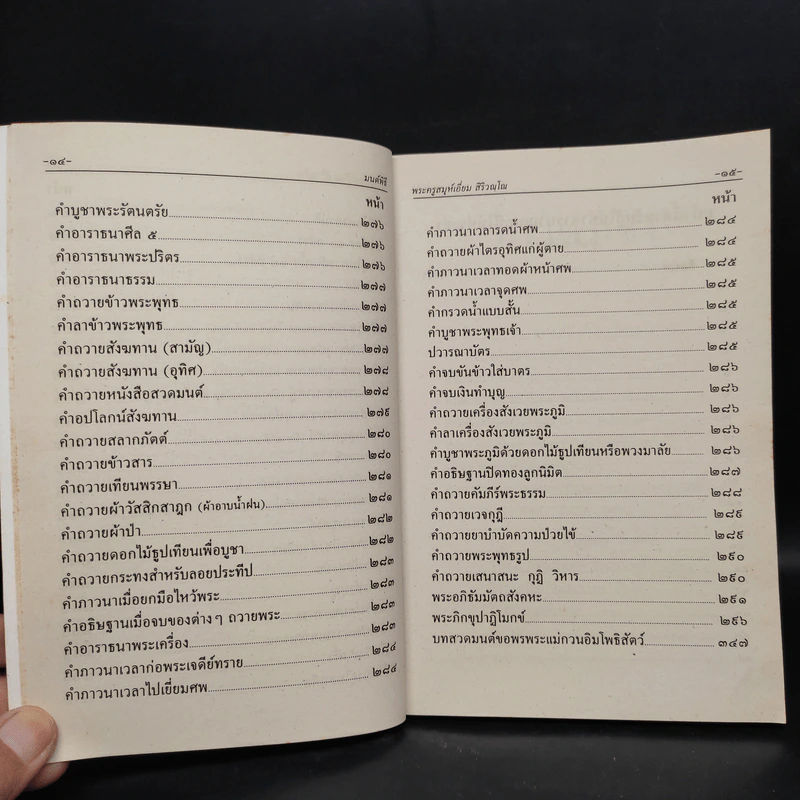 -๑๔-
มนต์พิธี
หน้า
คำบูชาพระรัตนตรัย ๒๗๖
คำอาราธนาศีล ๕ ๒๗๖
คำอาราธนาพระปริตร ๒๗๖
คำอาราธนาธรรม ๒๗๗
คำถวายข้าวพระพุทธ ๒๗๗
คำลาข้าวพระพุทธ ๒๗๗
คำถวายสังฆทาน (สามัญ) ๒๗๗
คำถวายสังฆทาน (อุทิศ) ๒๗๘
คำถวายหนังสือสวดมนต์ ๒๗๘
คำอปโลกน์สังฆทาน ๒๗๙
คำถวายสลากภัตต์ ๒๘๐
คำถวายข้าวสาร ๒๘๐
คำถวายเทียนพรรษา ๒๘๑
คำถวายผ้าวัสสิกสาฎก (ผ้าอาบน้ำฝน) ๒๘๑
คำถวายผ้าป่า ๒๘๒
คำถวายดอกไม้ธูปเทียนเพื่อบูชา ๒๘๒
คำถวายกระทงสำหรับลอยประทีป ๒๘๓
คำภาวนาเมื่อยกมือไหว้พระ ๒๘๓
คำอธิษฐานเมื่อจบของต่างๆ ถวายพระ ๒๘๓
คำอาราธนาพระเครื่อง ๒๘๓
คำภาวนาเวลาก่อพระเจดีย์ทราย ๒๘๔
คำภาวนาเวลาไปเยี่ยมศพ ๒๘๔
พระครูสมุห์เอี่ยม สิริวณฺโณ
-๑๕-
หน้า
คำภาวนาเวลารดน้ำศพ ๒๘๔
คำถวายผ้าไตรอุทิศแก่ผู้ตาย ๒๘๔
คำภาวนาเวลาทอดผ้าหน้าศพ ๒๘๕
คำภาวนาเวลาจุดศพ ๒๘๕
คำกรวดน้ำแบบสั้น ๒๘๕
คำบูชาพระพุทธเจ้า ๒๘๕
ปวารณาบัตร ๒๘๕
คำจบขันข้าวใส่บาตร ๒๘๖
คำจบเงินทำบุญ ๒๘๖
คำถวายเครื่องสังเวยพระภูมิ ๒๘๖
คำลาเครื่องสังเวยพระภูมิ ๒๘๖
คำบูชาพระภูมิด้วยดอกไม้ธูปเทียนหรือพวงมาลัย ๒๘๖
คำอธิษฐานปิดทองลูกนิมิต ๒๘๗
คำถวายคัมภีร์พระธรรม ๒๘๘
คำถวายเวจกุฎี ๒๘๙
คำถวายยาบำบัดความป่วยไข้ ๒๘๙
คำถวายพระพุทธรูป ๒๙๐
คำถวายเสนาสนะ กุฏิ วิหาร ๒๙๐
พระอภิธัมมัตถสังคหะ ๒๙๑
พระภิกขุปาฏิโมกข์ ๒๙๖
บทสวดมนต์ขอพรพระแม่กวนอิมโพธิสัตว์ ๓๔๗